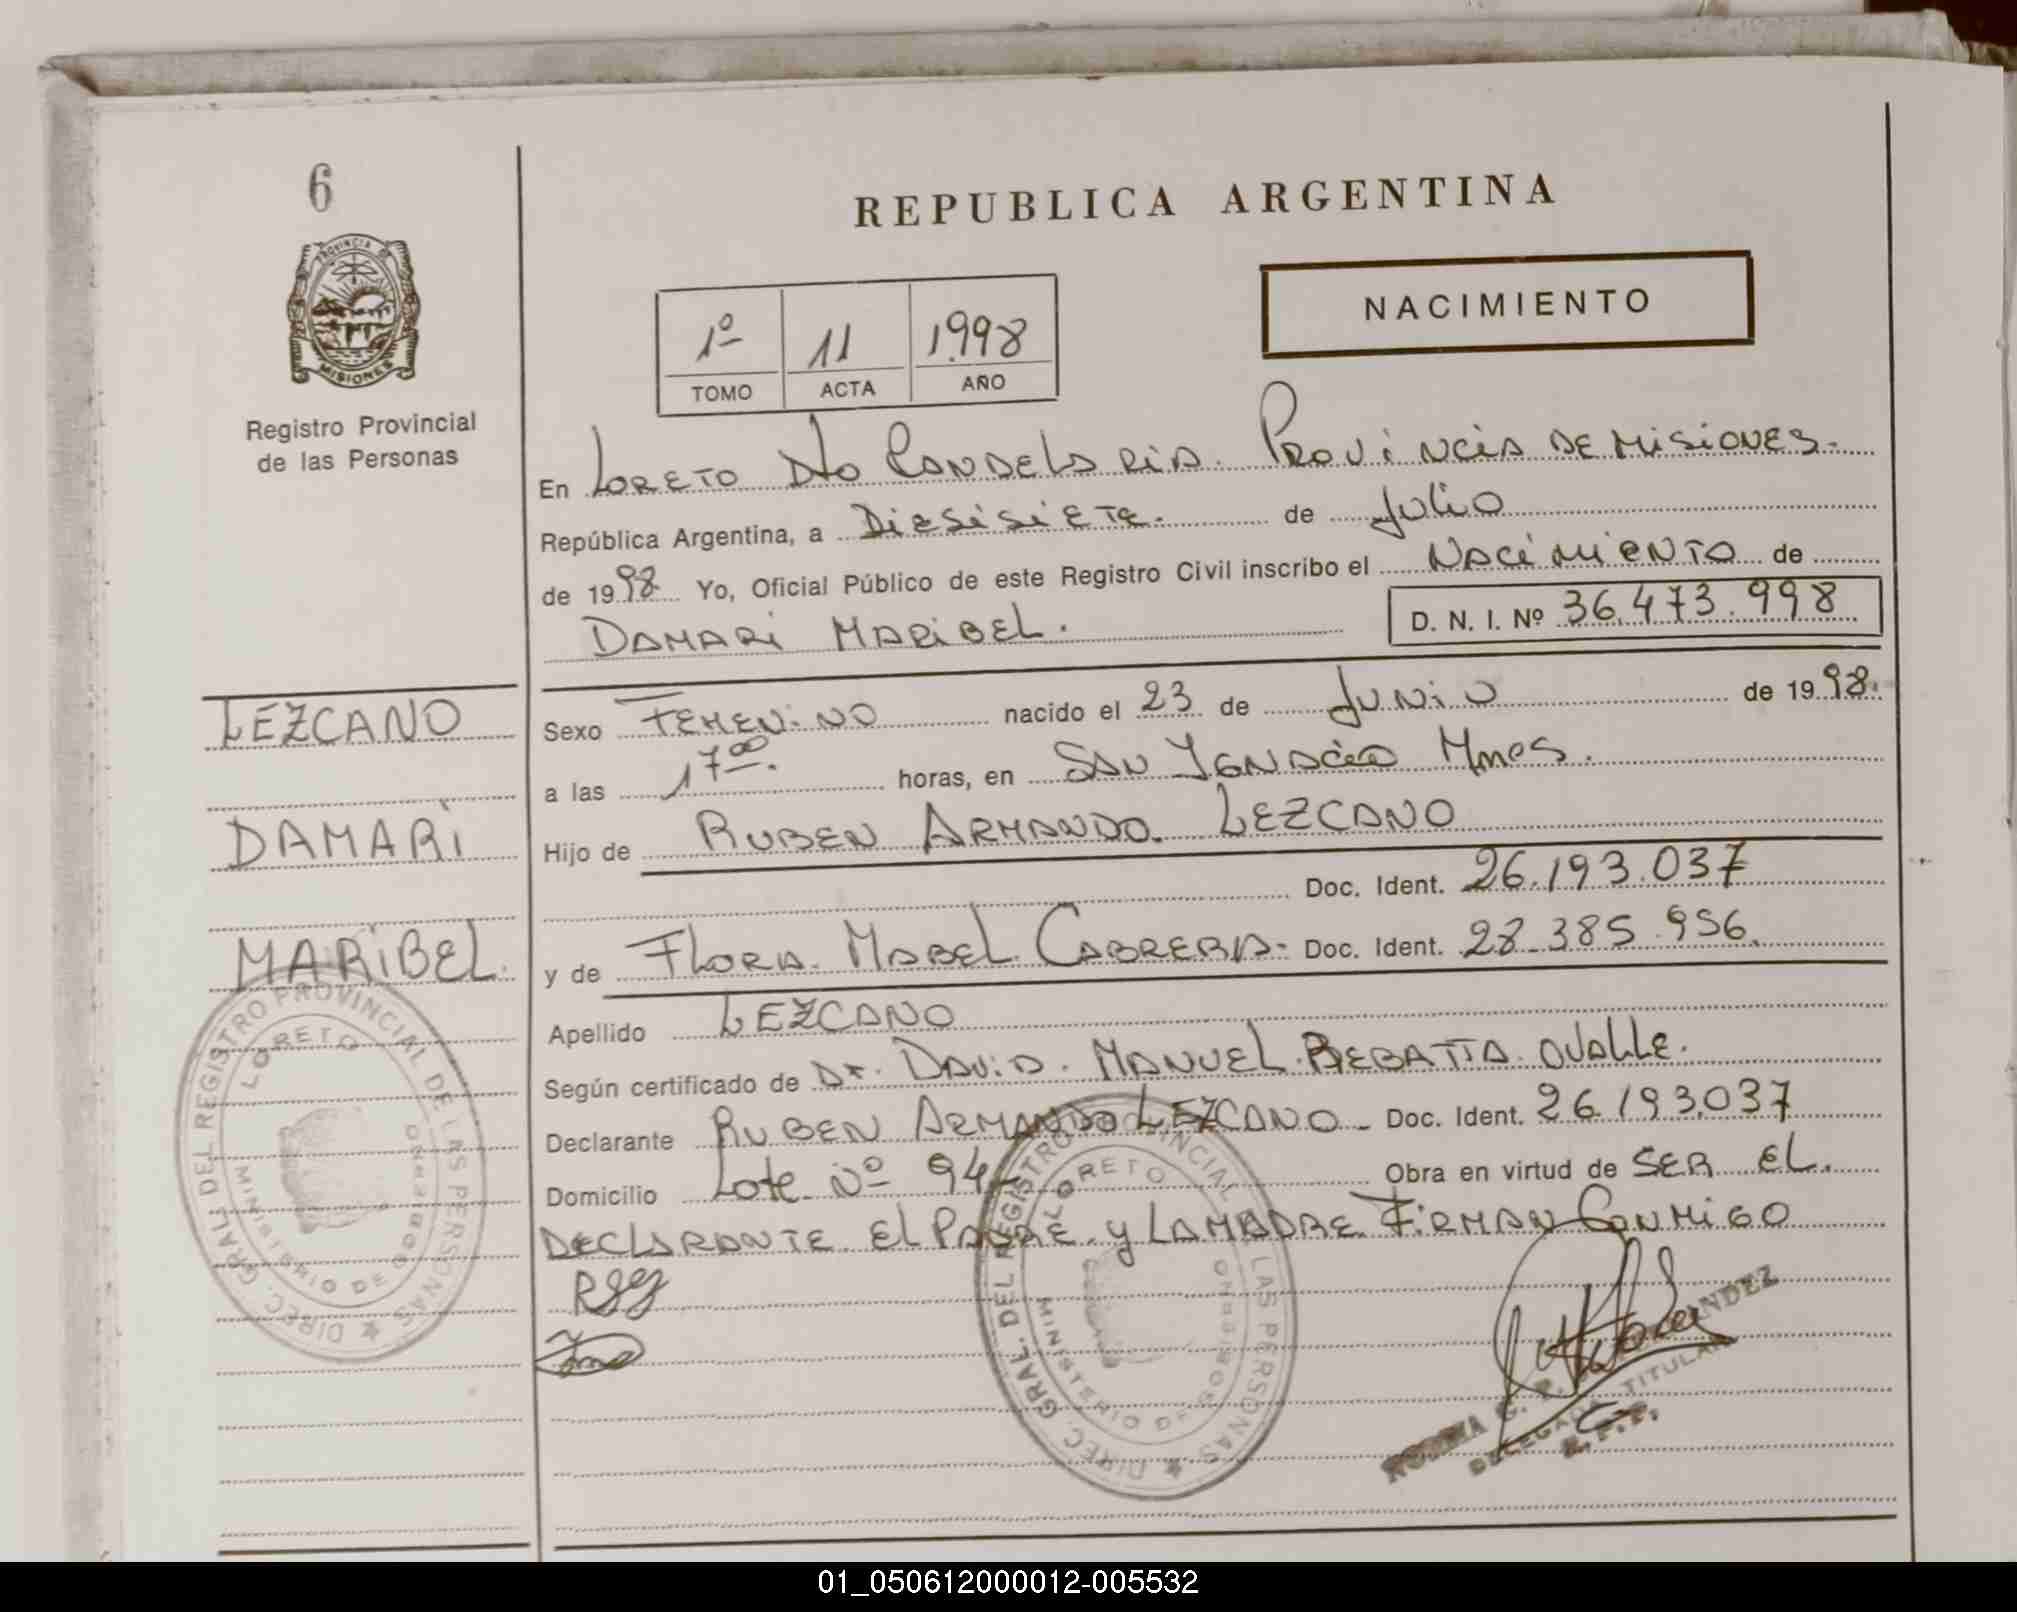 6
PROVINCIA DE
MISIONES
Registro Provincial
de las Personas
REPUBLICA ARGENTINA
NACIMIENTO
1º 11 1.998
TOMO ACTA AÑO
En LORETO Dto CANDELARIA. PROVINCIA DE MISIONES.
República Argentina, a DIESISIETE. de JULIO
de 1998 Yo, Oficial Público de este Registro Civil inscribo el NACIMIENTO de
DAMARI MARIBEL. D. N. I. Nº 36.473.998
LEZCANO
DAMARI
MARIBEL.
Sexo FEMENINO nacido el 23 de JUNIO de 1998.
a las 17⁰⁰. horas, en SAN IGNACIO Mnes.
Hijo de RUBEN ARMANDO. LEZCANO
Doc. Ident. 26.193.037
y de FLORA. MABEL CABRERA. Doc. Ident. 28.385.956.
Apellido LEZCANO
Según certificado de Dr. DAVID. MANUEL. OVALLE.
Declarante RUBEN ARMANDO LEZCANO - Doc. Ident. 26.193.037
Domicilio Lote Nº 94 Obra en virtud de SER EL.
DECLARANTE EL PADRE y LA MADRE FIRMAN CONMIGO
DIREC. GRAL. DEL REGISTRO PROVINCIAL DE LAS PERSONAS
LORETO
MINISTERIO DE GOBIERNO
DIREC. GRAL. DEL REGISTRO PROVINCIAL DE LAS PERSONAS
LORETO
MINISTERIO DE GOBIERNO
NORMA G.
DELEGADA TITULAR
01_050612000012-005532